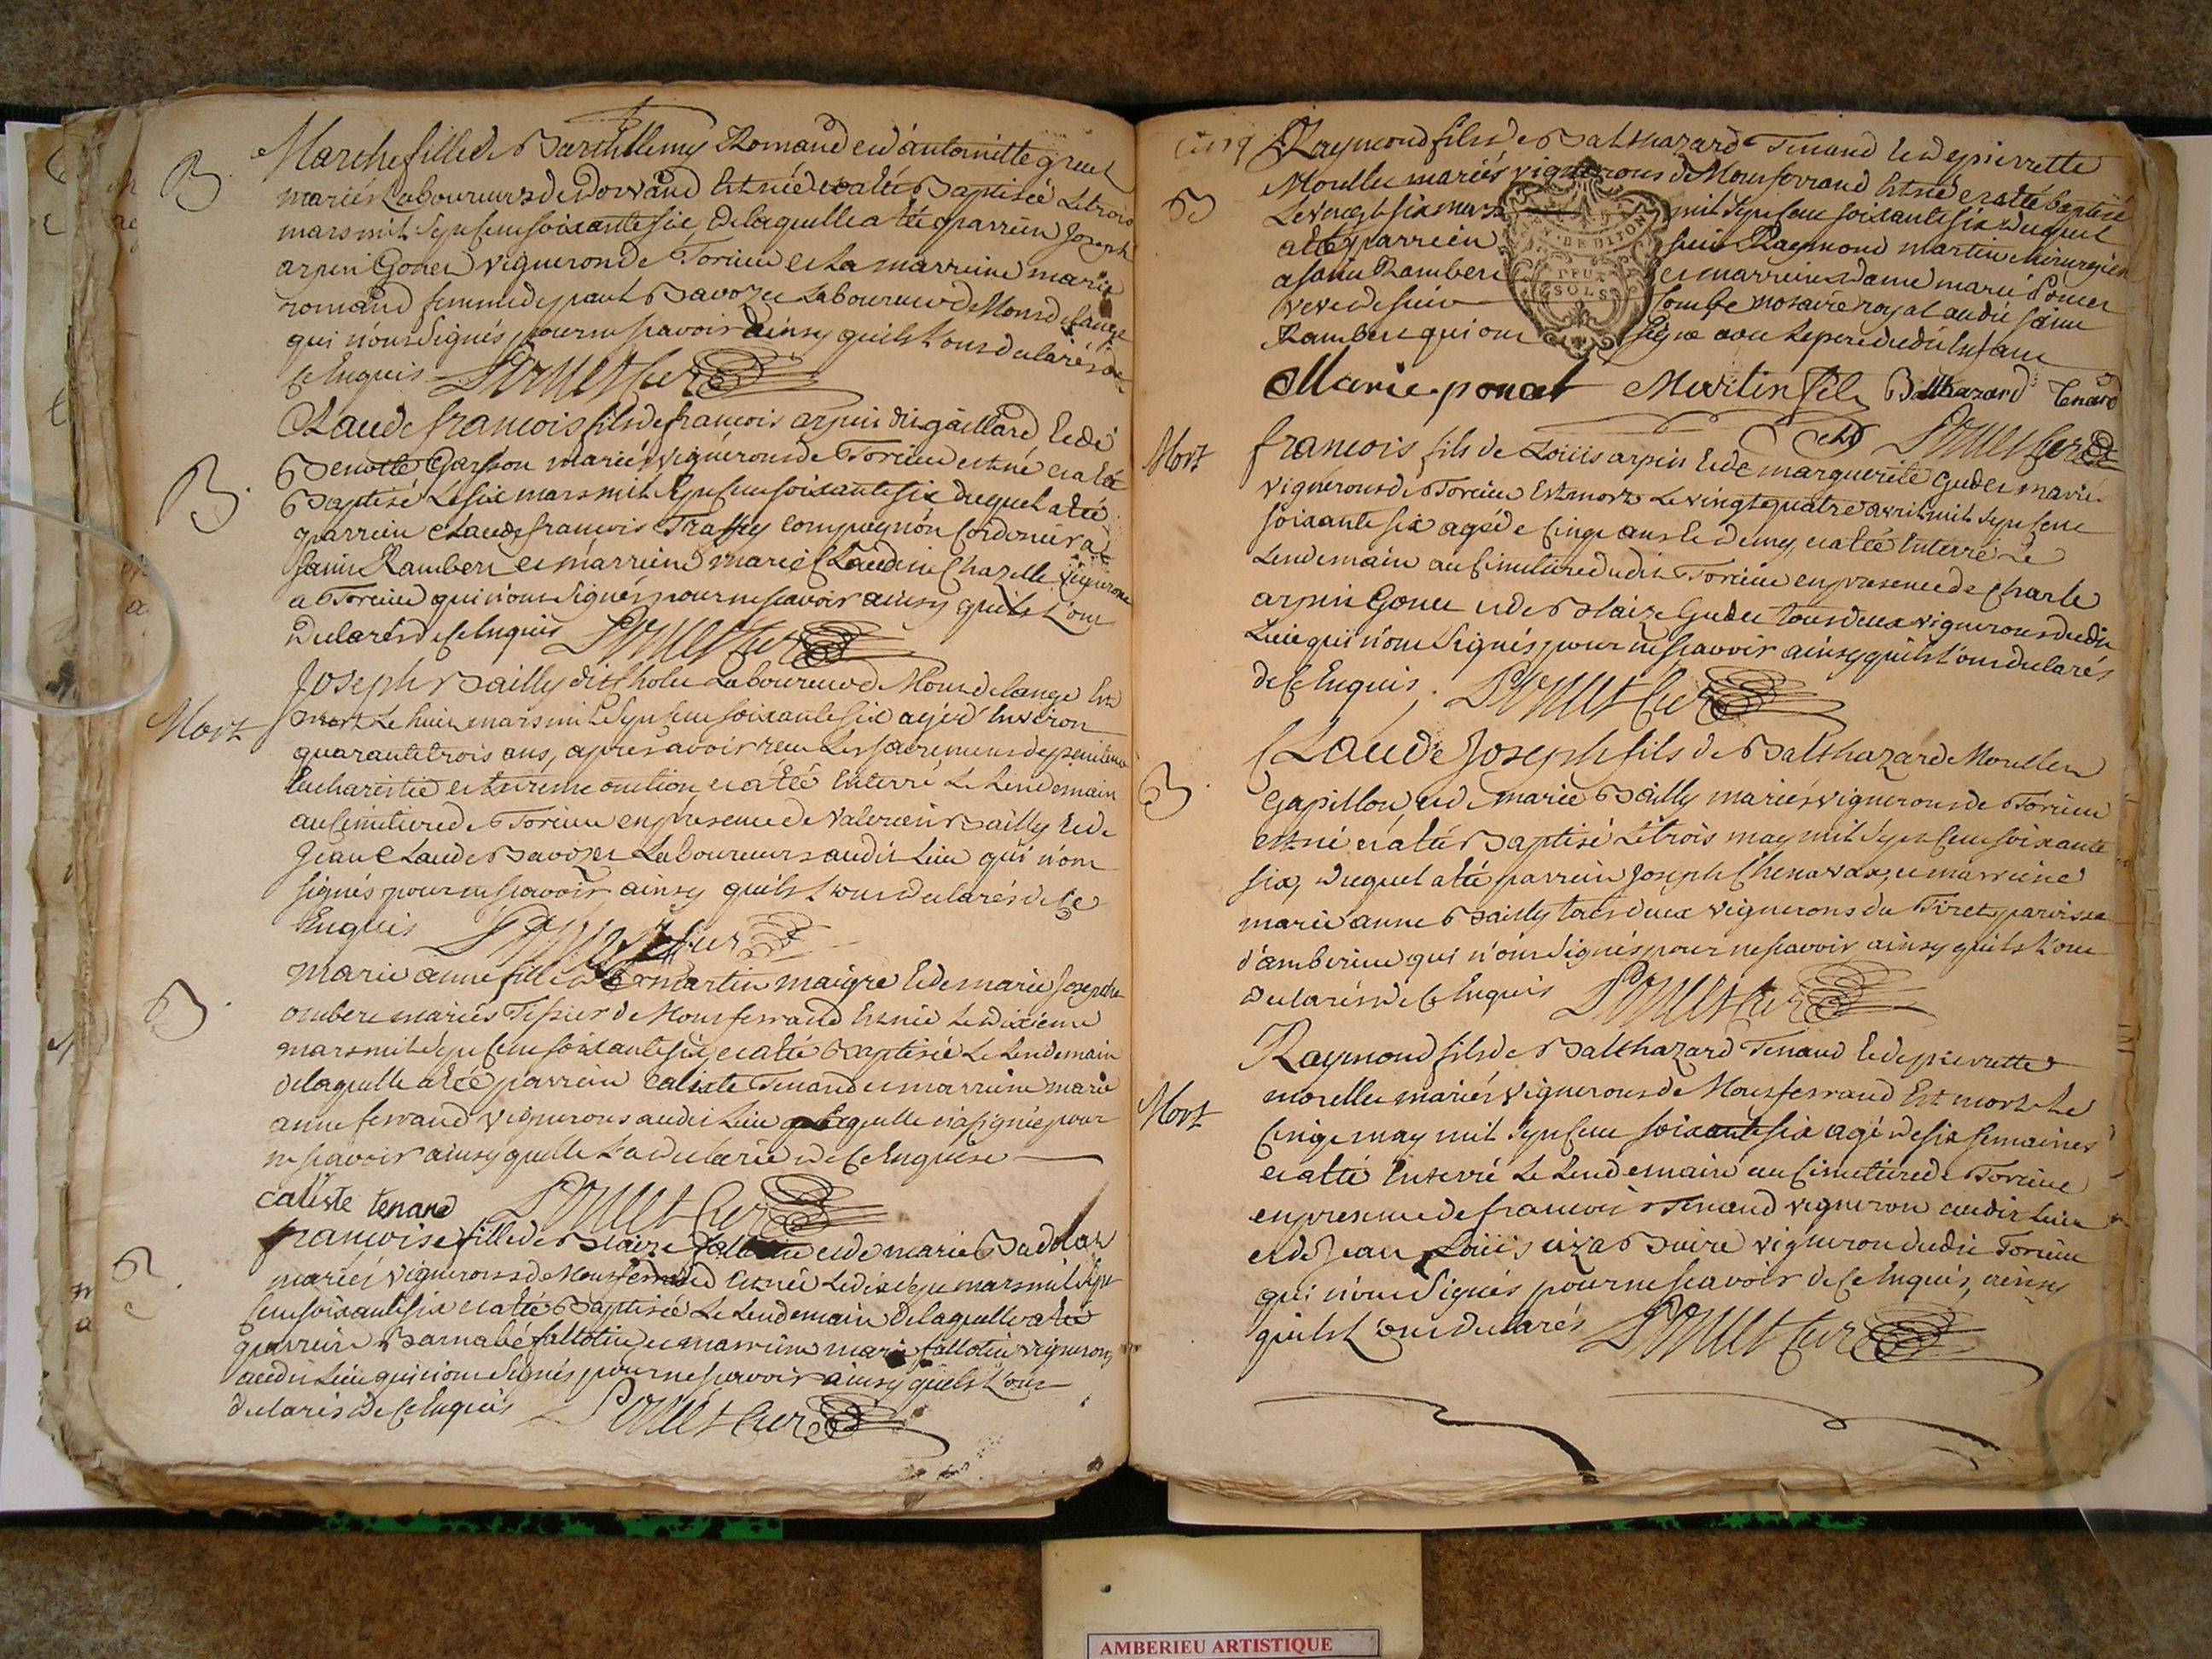 B. Marthe fille de Barthelemy Romand et d'antoinette
mariés Laboureurs de dorvand Est née et a été Baptisée Le trois
mars mil sept cens soixante six, de laquelle a été parrein Joseph
arpin Gonet vigneron de Torcieu et La marreine marie
romand femme de paul Savozet Laboureur de Mont de Lange
qui n'ont signés pour ne sçavoir ainsy quils L'ont declarés de
Ce Enquis Poncet Curé
Claude francois fils de francois arpin dit gaillard Et de
B. Benoite mariés vignerons de Torcieu est né et a été
Baptisé Le six mars mil sept cens soixante six duquel a été
parrein Claude francois Traffey compagnon Cordonier a
saint Rambert et marreine marie Claudine Chazelle vignerone
a Torcieu qui n'ont signés pour ne sçavoir ainsy quils L'ont
declarés de Ce Enquis Poncet Curé
Joseph Bailly dit Laboureur de Mont de lange Est
Mort mort Le huit mars mil sept cens soixante six agé d'Environ
quarante trois ans, apres avoir reçu Les sacremens de penitence
Eucharistie et Extreme onction, et a été Enterré Le Lendemain
au Cimetiere de Torcieu en presence de Valerien Bailly Et de
Jean Claude Savozet Laboureurs audit Lieu qui n'ont
signés pour ne sçavoir ainsy quils L'ont declarés de Ce
Enquis Poncet Curé
B. Marie anne fille de martin maigre Et de marie Josephe
mariés Tissier de Montferrand Est née Le dixieme
mars mil sept cens soixante six, et a été Baptisée Le Lendemain
de laquelle a été parrein Calixte Tenand et marreine marie
anne ferrand vignerons audit Lieu laquelle n'a signée pour
ne sçavoir ainsy quelle L'a declarée de Ce Enquise
caliste tenand Poncet Curé
B. francoise fille de Blaize fallotin et de marie
mariés vignerons de Montferrand Est née Le dix sept mars mil sept
cens soixante six et a été Baptisée Le Lendemain de laquelle a été
parrein Barnabé fallotin et marreine marie fallotin vignerons
audit Lieu qui n'ont signés pour ne sçavoir ainsy quils L'ont
declarés de Ce Enquis Poncet Curé
Cinq Raymond fils de Balthazard Tenand Et de pierrette
Morellet mariés vignerons de Montferrand Est né et a été baptisé
B Le vingt six mars mil sept cens soixante six duquel
a été parrein sieur Raymond martin chirurgien
a saint Rambert et marreine dame marie Poncet
veve de sieur Combe notaire royal audit saint
Rambert qui ont signé avec Le pere dudit Enfant
Marie poncet Martin fils Balthazard Tenand
Poncet Curé
Mort francois fils de Loüis arpin Et de marguerite Gudet mariés
vignerons de Torcieu Est mort Le vingt quatre avril mil sept cens
soixante six agé de Cinq ans Et demy, et a été Enterré Le
Lendemain au Cimetiere dudit Torcieu en presence de Charle
arpin Gonet et de Blaize Gudet tous deux vignerons dudit
Lieu qui n'ont signés pour ne sçavoir ainsy quils L'ont declarés
de Ce Enquis. Poncet Curé
Claude Joseph fils de Balthazard Morellet
B. Gapillon, et de marie Bailly mariés vignerons de Torcieu
est né et a été Baptisé Le trois may mil sept cens soixante
six, duquel a été parrein Joseph Chenavax, et marreine
marie anne Bailly tous deux vignerons du Tiret paroisse
d'amberieu qui n'ont signés pour ne sçavoir ainsy quils L'ont
declarés de Ce Enquis Poncet Curé
Raymond fils de Balthazard Tenand Et de pierrette
morellet mariés vignerons de Montferrand Est mort Le
Mort Cinq may mil sept cens soixante six agé de six semaines
et a été Enterré Le Lendemain au Cimetiere de Torcieu
en presence de francois Tenand vigneron audit Lieu
et de Jean Loüis vigneron dudit Torcieu
qui n'ont signés pour ne sçavoir de Ce Enquis, ainsy
quils L'ont declarés Poncet Curé
DEUX
SOLS
AMBERIEU ARTISTIQUE